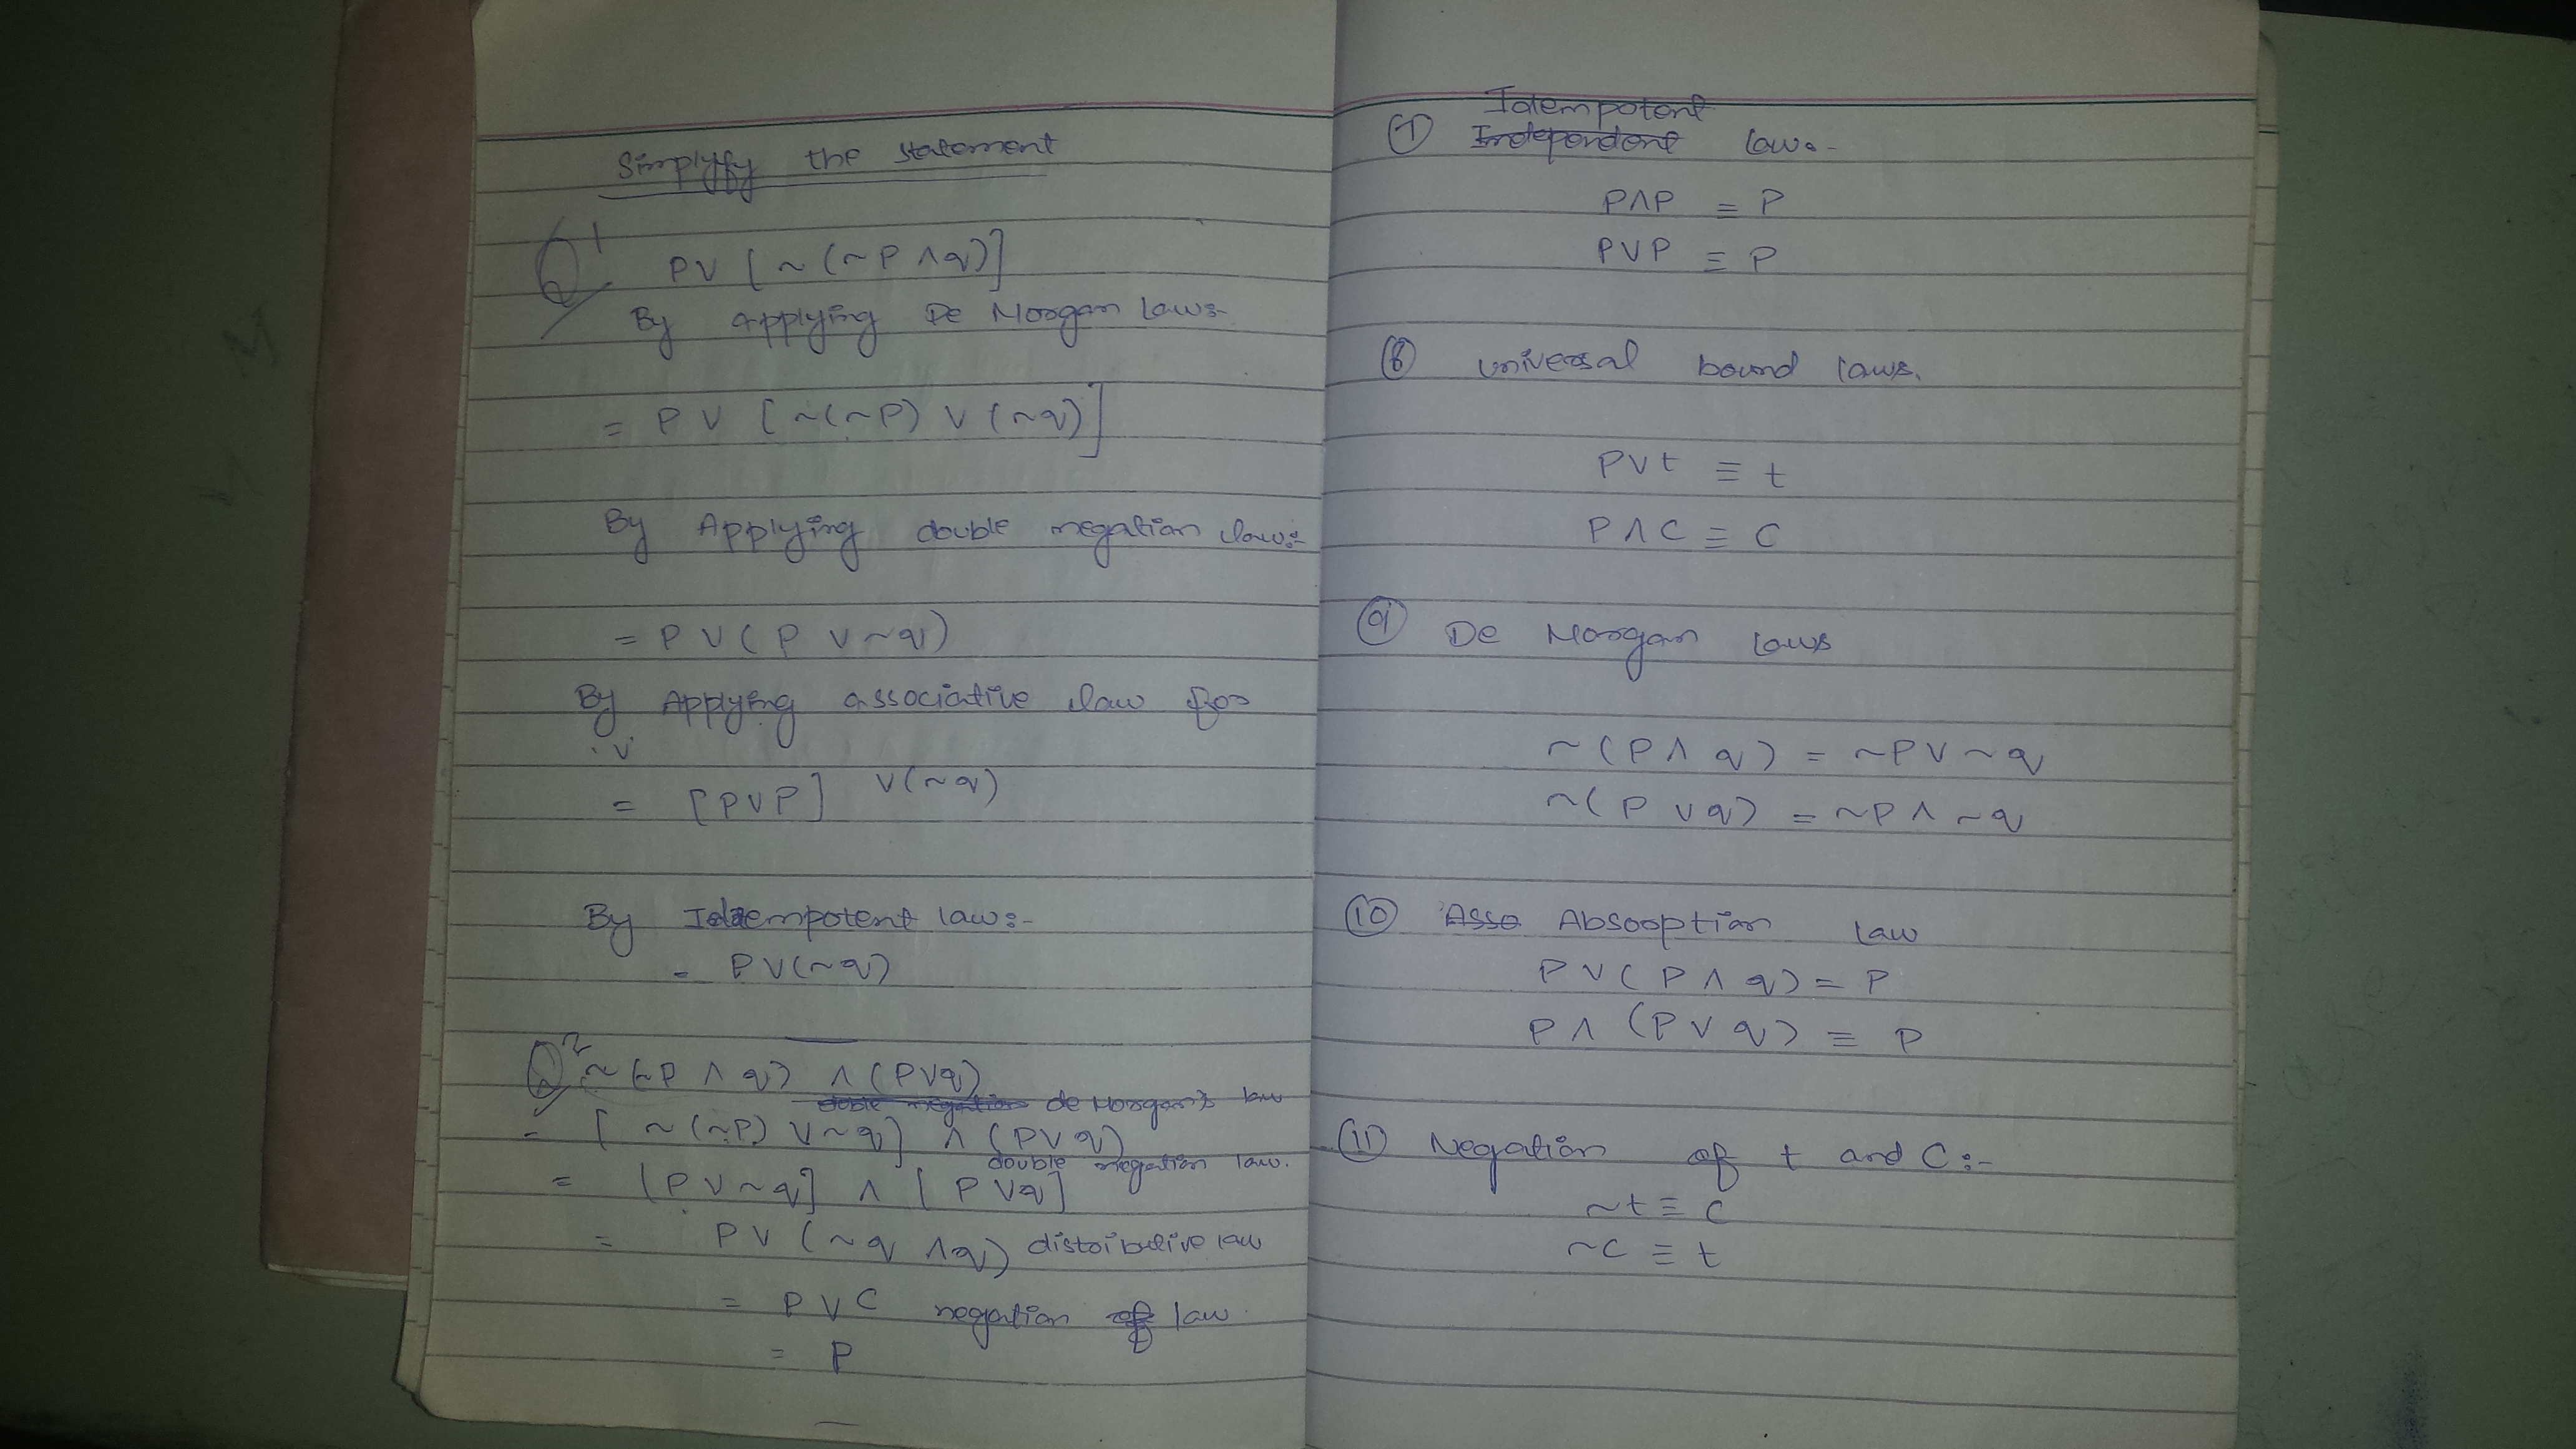 Simplyfy the statement
Q1 P∨[~(~P∧q)]
By Applying De Morgan laws:-
= P∨[~(~P)∨(~q)]
By Applying double negation law:-
= P∨(P∨~q)
By Applying associative law for
∨
= [P∨P] ∨(~q)
By Idempotent law:-
= P∨(~q)
Q2 ~(~P∧q) ∧(P∨q)
double negation de Morgan's law
= [~(~P)∨~q] ∧(P∨q)
double negation law.
= [P∨~q] ∧ [P∨q]
= P∨(~q∧q) distributive law
= P∨C negation of law
= P
Idempotent
(7) Independent law:-
P∧P ≡ P
P∨P ≡ P
(8) universal bound laws.
P∨t ≡ t
P∧C ≡ C
(9) De Morgan laws
~(P∧q) = ~P∨~q
~(P∨q) = ~P∧~q
(10) Asso Absorption law
P∨(P∧q) = P
P∧(P∨q) ≡ P
(11) Negation of t and C:-
~t ≡ C
~C ≡ t